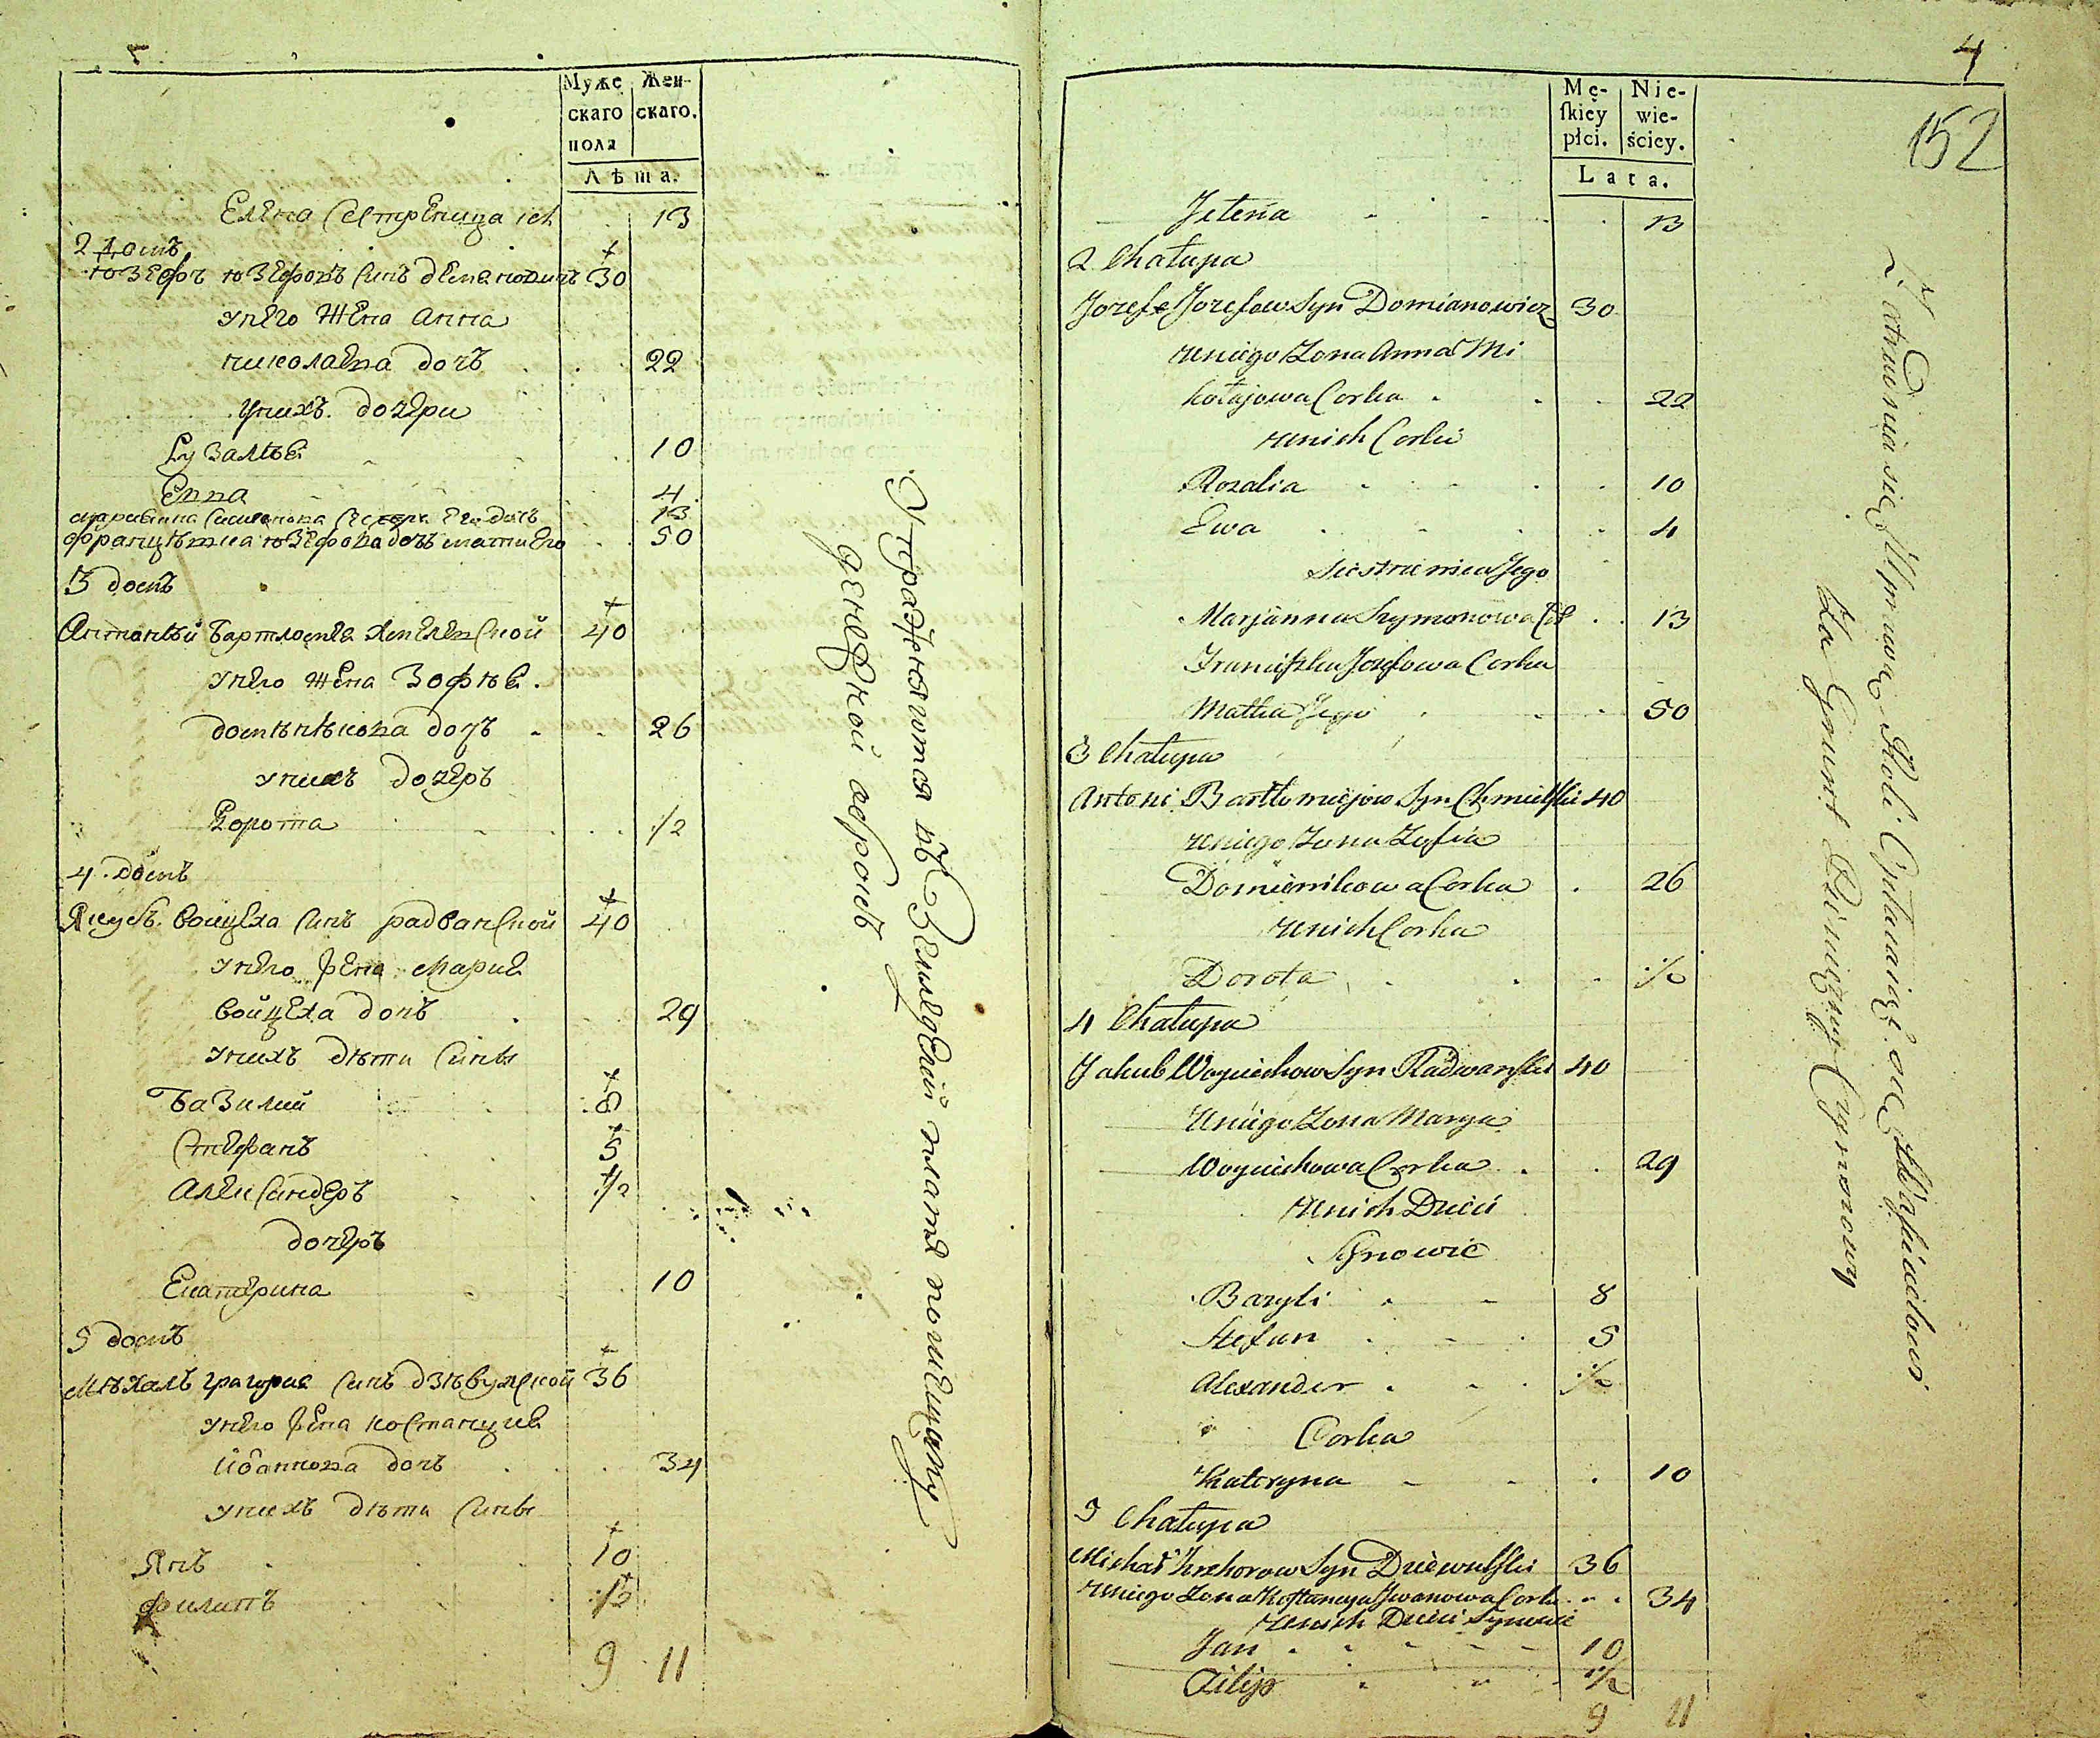 Муже
скаго
пола
Жен-
скаго.
Лѣта.
Елена Сестреница ихъ 13
2 домъ
юзефъ юзефовъ синъ деменовичъ 30
унего жена анна
николаева дочъ 22
унихъ дочери
Рузалѣе 10
Евва 4
марианна Симонова Сестра его дочъ 13
францѣшка юзефова дочъ мать его 50
3 домъ
Антонѣй Бартломѣея хмелевской 40
унего жена Зофѣе
доменѣкова дочъ 26
унихъ дочеръ
Дорота 1/2
4 домъ
Якубъ войцеха синъ радванской 40
унего жена марие
войцеха дочъ 29
унихъ дѣти сины
Базилий 8
Стефанъ 5
Александеръ 1/2
дочеръ
Екатерина 10
5 домъ
Мѣхалъ григорие синъ дзѣвулской 36
унего жена костанцие
ивановна дочъ 34
унихъ дѣти сины
Янъ 10
филипъ 1/2
9 11
Упражняются въ Земледелии платя помещику
денежной оброкъ
4
152
Mę-
ſkiey
płci.
Nie-
wie-
ściey.
Lata.
Jelena 13
2 Chałupa
Jozef Jozefow Syn Domianowicz 30
uniego Zona Anna Mi
kołajowa Corka 22
unich Corki
Rozalia 10
Ewa 4
Siestrienica Jego
Marjanna Szymonowa Cor 13
Franciszka Jozefowa Corka
Matka Jego 50
3 Chałupa
Antoni Bartłomiejow Syn Chmielſki 40
uniego Zona Zofia
Dominikowa Corka 26
unich Corka
Dorota 1/2
4 Chałupa
Jakub Woyciechow Syn Radwanſki 40
Uniego Zona Marya
Woyciechowa Corka 29
unich Dzieci
Synowie
Bazyli 8
Stefan 5
Alexander 1/2
Corka
Kateryna 10
5 Chałupa
Michał Hrehorow Syn Dziewulſki 36
uniego Zona Koſtancya Jwanowa Corka 34
Unich Dzieci Synowie
Jan 10
Filip 1/2
9 11
Zatrudnia się Uprawą Roli Opłacaiąc się Właścicielowi
Za Grunt Pieniężny Czynszowy